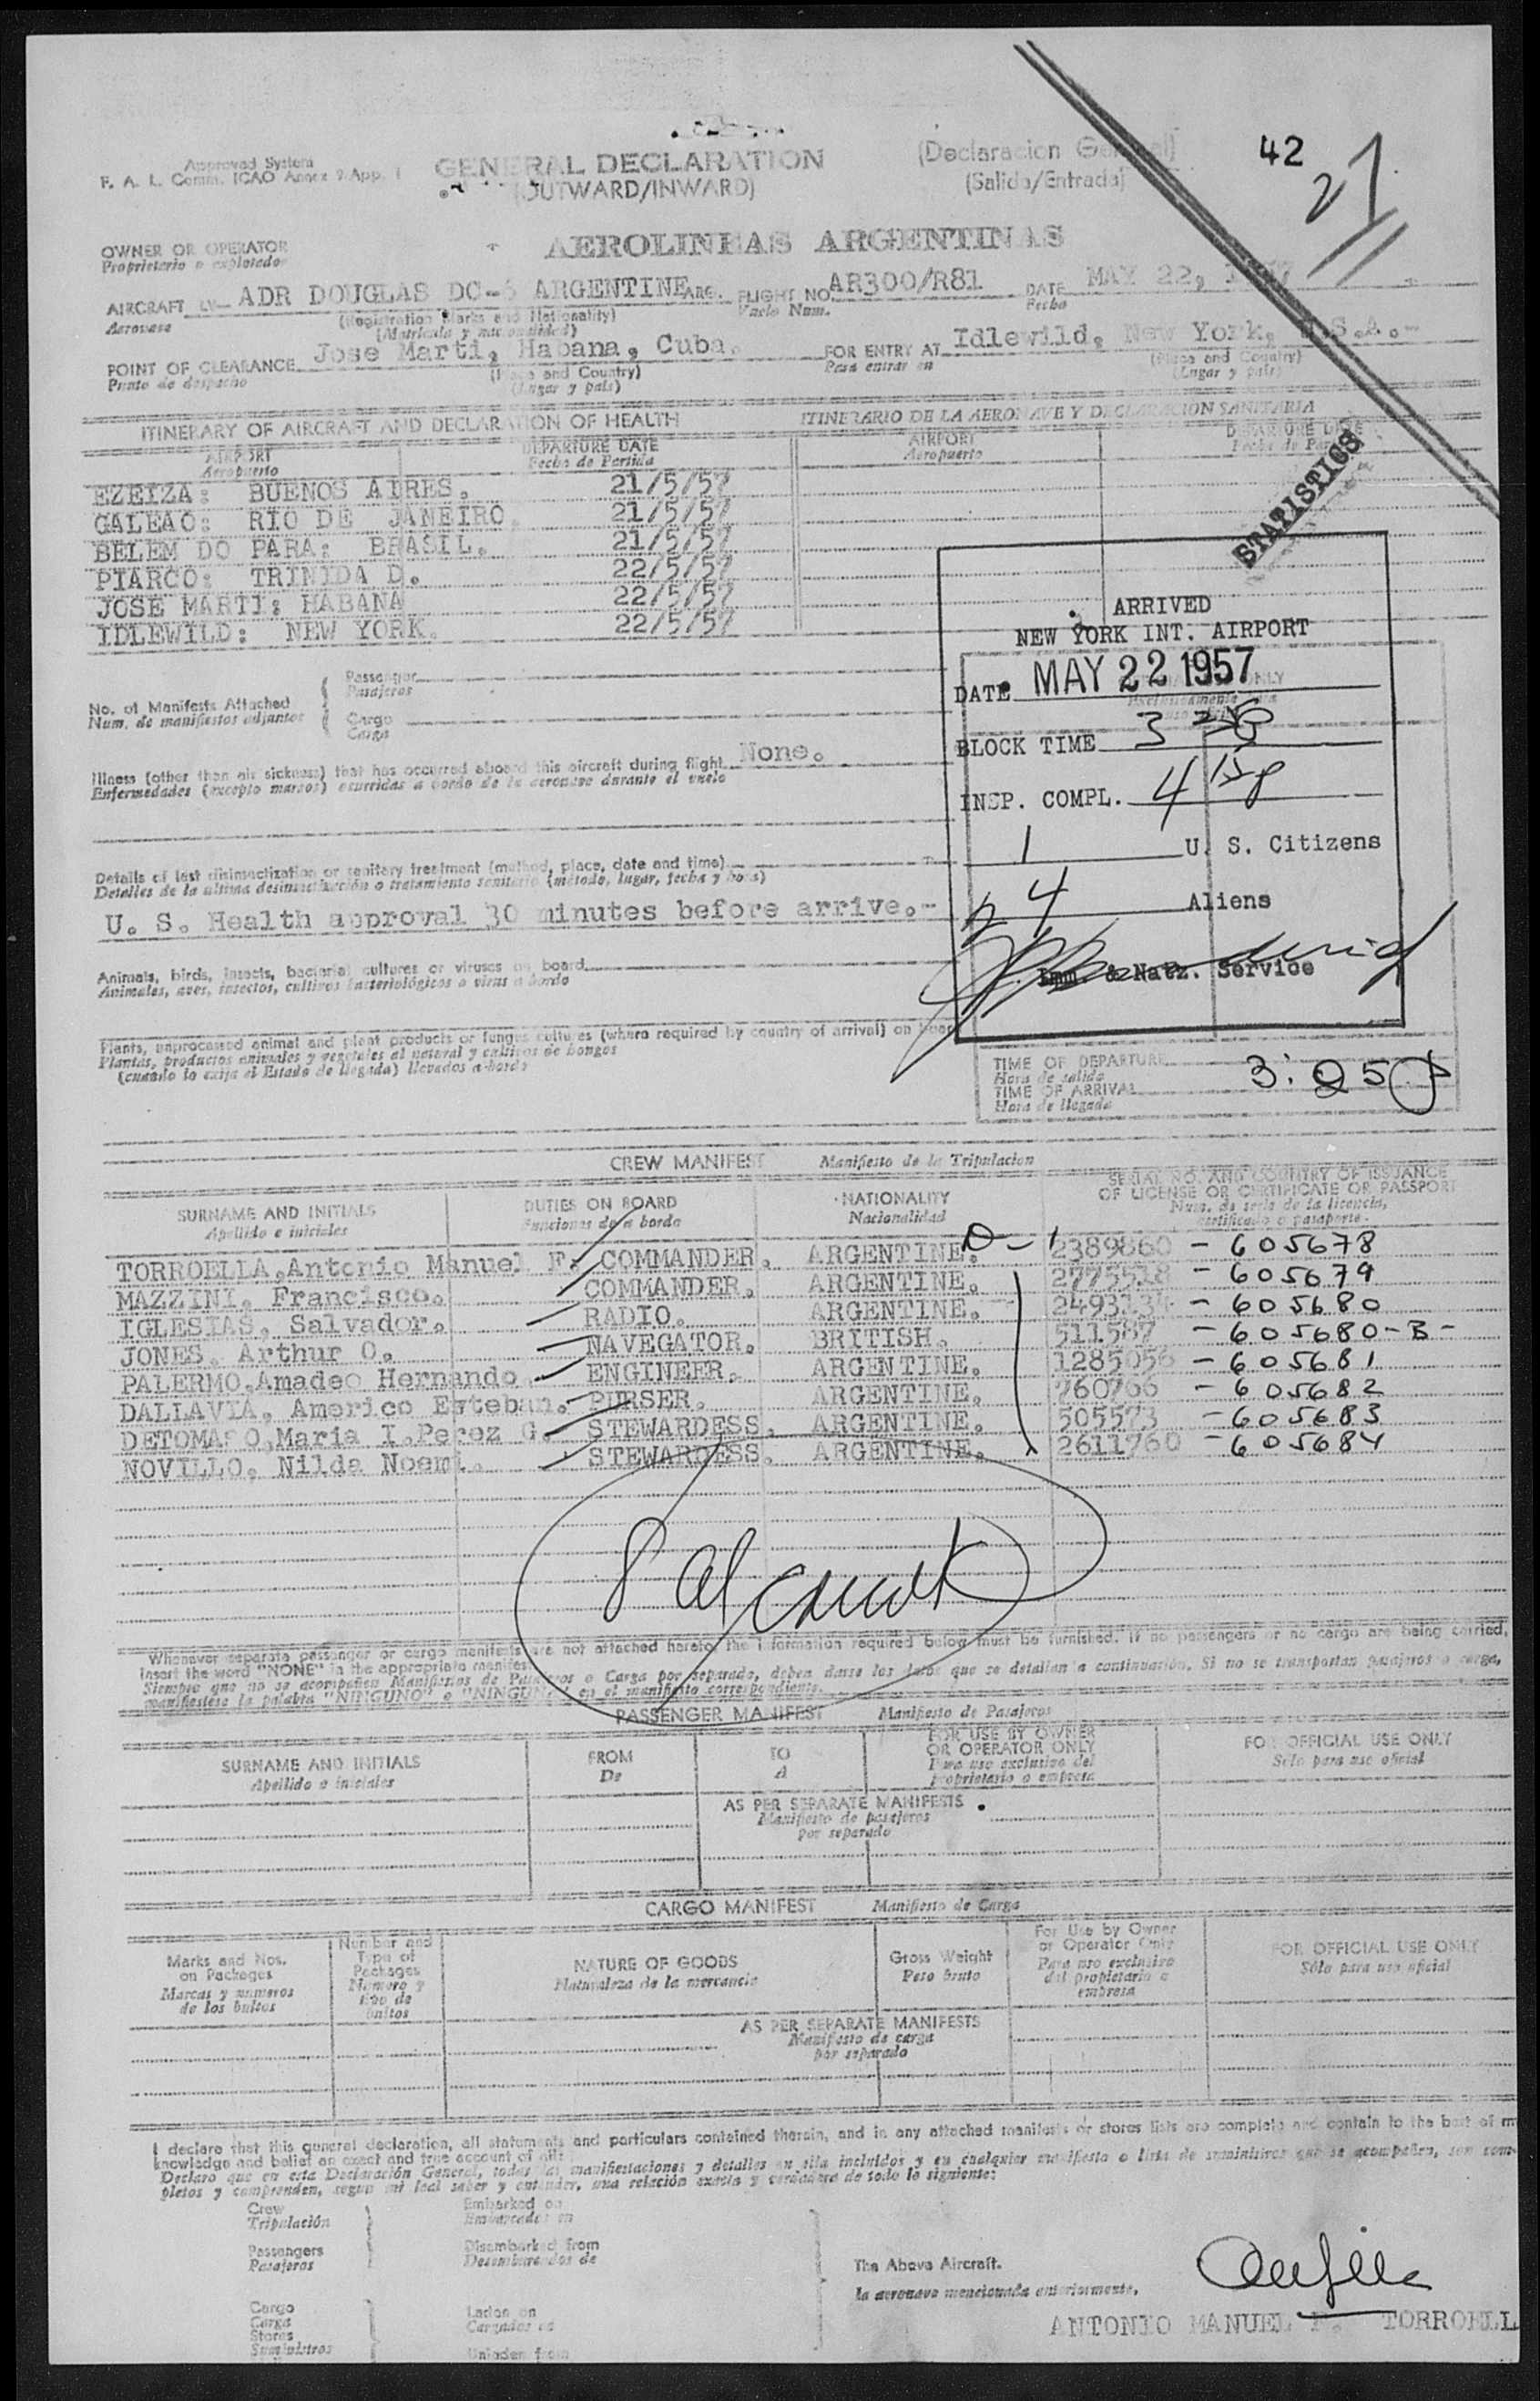 42
21
Approved System
F. A. L. Comm. ICAO Annex 9 App. 1
GENERAL DECLARATION
(OUTWARD/INWARD)
(Declaracion General)
(Salida/Entrada)
OWNER OR OPERATOR
Proprietario o explotador
AEROLINEAS ARGENTINAS
AIRCRAFT LV- ADR DOUGLAS DC-6 ARGENTINE ARG. FLIGHT NO AR300/R81 DATE MAY 22, 1957
Aeronave (Registration Marks and Nationality) Vuelo Num. Fecha
(Matricula y nacionalidad)
POINT OF CLEARANCE Jose Marti, Habana, Cuba. FOR ENTRY AT Idlewild, New York, U.S.A.-
Punto de despacho (Place and Country) Para entrar en (Place and Country)
(Lugar y pais) (Lugar y pais)
ITINERARY OF AIRCRAFT AND DECLARATION OF HEALTH ITINERARIO DE LA AERONAVE Y DECLARACION SANITARIA
AIRPORT DEPARTURE DATE AIRPORT DEPARTURE DATE
Aeropuerto Fecha de Partida Aeropuerto Fecha de Partida
EZEIZA: BUENOS AIRES. 21/5/57
GALEAO: RIO DE JANEIRO 21/5/57
BELEM DO PARA: BRASIL. 21/5/57
PIARCO: TRINIDA D. 22/5/57
JOSE MARTI: HABANA 22/5/57
IDLEWILD: NEW YORK. 22/5/57
STATISTICS
ARRIVED
NEW YORK INT. AIRPORT
DATE MAY 22 1957
BLOCK TIME 3
INSP. COMPL. 4 15p
1 U. S. Citizens
4 Aliens
Imm. & Natz. Service
No. of Manifests Attached Passenger
Num. de manifiestos adjuntos Pasajeros
Cargo
Carga
Illness (other than air sickness) that has occurred aboard this aircraft during flight None.
Enfermedades (excepto mareos) ocurridas a bordo de la aeronave durante el vuelo
Details of last disinsectization or sanitary treatment (method, place, date and time)
Detalles de la ultima desinsectización o tratamiento sanitario (método, lugar, fecha y hora)
U. S. Health approval 30 minutes before arrive.-
Animals, birds, insects, bacterial cultures or viruses on board
Animales, aves, insectos, cultivos bacteriológicos o virus a bordo
Plants, unprocessed animal and plant products or fungus cultures (where required by country of arrival) on board
Plantas, productos animales y vegetales al natural y cultivos de hongos
(cuando lo exija el Estado de llegada) llevados a bordo
TIME OF DEPARTURE
Hora de salida
TIME OF ARRIVAL 3:25p
Hora de llegada
CREW MANIFEST Manifiesto de la Tripulacion
SURNAME AND INITIALS DUTIES ON BOARD NATIONALITY SERIAL NO. AND COUNTRY OF ISSUANCE
OF LICENSE OR CERTIFICATE OR PASSPORT
Apellido e iniciales Funciones de a bordo Nacionalidad Num. de serie de la licencia,
certificado o pasaporte.
TORROELLA, Antonio Manuel F. COMMANDER. ARGENTINE. 2389860 - 605678
MAZZINI, Francisco. COMMANDER. ARGENTINE. - 605679
IGLESIAS, Salvador. RADIO. ARGENTINE. - 605680
JONES, Arthur O. NAVEGATOR. BRITISH. 511587 - 605680-B-
PALERMO, Amadeo Hernando. ENGINEER. ARGENTINE. 1285056 - 605681
DALLAVIA, Americo Esteban. PURSER. ARGENTINE. 760766 - 605682
DETOMASO, Maria I. Perez G. STEWARDESS. ARGENTINE. 505573 - 605683
NOVILLO, Nilda Noemi. STEWARDESS. ARGENTINE. 2611760 - 605684
Whenever separate passenger or cargo manifests are not attached hereto the information required below must be furnished. If no passengers or no cargo are being carried,
insert the word "NONE" in the appropriate manifest
Siempre que no se acompañen Manifiestos de Pasajeros o Carga por separado, deben darse los datos que se detallan a continuación. Si no se transportan pasajeros o carga,
manifiestese la palabra "NINGUNO" o "NINGUNA" en el manifiesto correspondiente.
PASSENGER MANIFEST Manifiesto de Pasajeros
SURNAME AND INITIALS FROM TO FOR USE BY OWNER OR OPERATOR ONLY FOR OFFICIAL USE ONLY
Apellido e iniciales De A Para uso exclusivo del propietario o empresa Sólo para uso oficial
AS PER SEPARATE MANIFESTS
Manifiesto de pasajeros
por separado
CARGO MANIFEST Manifiesto de Carga
Marks and Nos. on Packages Number and Type of Packages NATURE OF GOODS Gross Weight For Use by Owner or Operator Only FOR OFFICIAL USE ONLY
Marcas y numeros de los bultos Numero y tipo de bultos Naturaleza de la mercancia Peso bruto Para uso exclusivo del propietario o empresa Sólo para uso oficial
AS PER SEPARATE MANIFESTS
Manifiesto de carga
por separado
I declare that this general declaration, all statements and particulars contained therein, and in any attached manifests or stores lists are complete and contain to the best of m
knowledge and belief an exact and true account of all:
Declaro que en esta Declaración General, todas las manifestaciones y detalles en ella incluidos y en cualquier manifiesto o lista de suministros que se acompañen, son com-
pletos y comprenden, segun mi leal saber y entender, una relación exacta y verdadera de todo lo siguiente:
Crew Embarked on
Tripulación Embarcados en
Passengers Disembarked from
Pasajeros Desembarcados de
The Above Aircraft.
la aeronave mencionada anteriormente.
Cargo Laden on
Carga Cargados en
Stores
Suministros Unladen from
ANTONIO MANUEL F. TORROELL